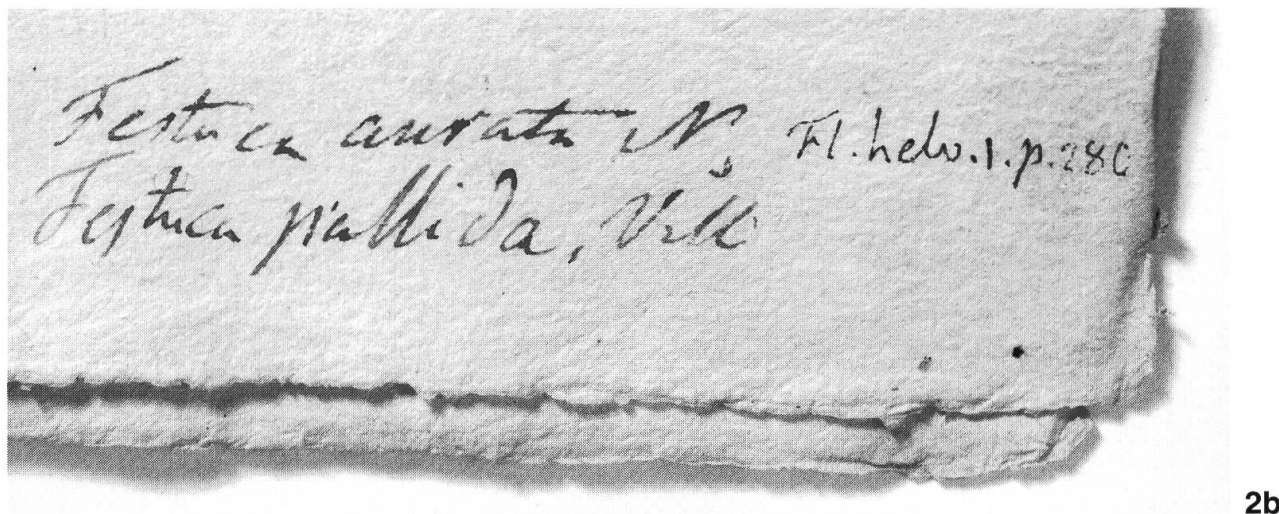 Festuca aurata N. Fl. helv. 1. p. 280
Festuca pallida, Vill
2b